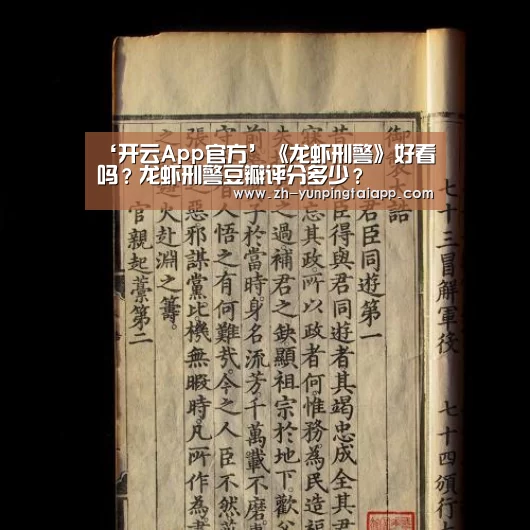 ‘开云App官方’《龙虾刑警》好看
吗？龙虾刑警豆瓣评分多少？
www.zh-yunpingtaiapp.com
七十三冒解軍役 七十四頒行
御製大誥
君臣同遊第一
昔 臣得與君同遊者其竭忠成全其君
忘其政所以政者何惟務為民造福
失 之過補君之缺顯祖宗於地下歡
前 子於當時身名流芳千萬載不磨
守 人悟之有何難哉今之人臣不然
張 之惡邪謀黨比機無暇時凡所作為
之 火赴淵之籌
官親起藁第二